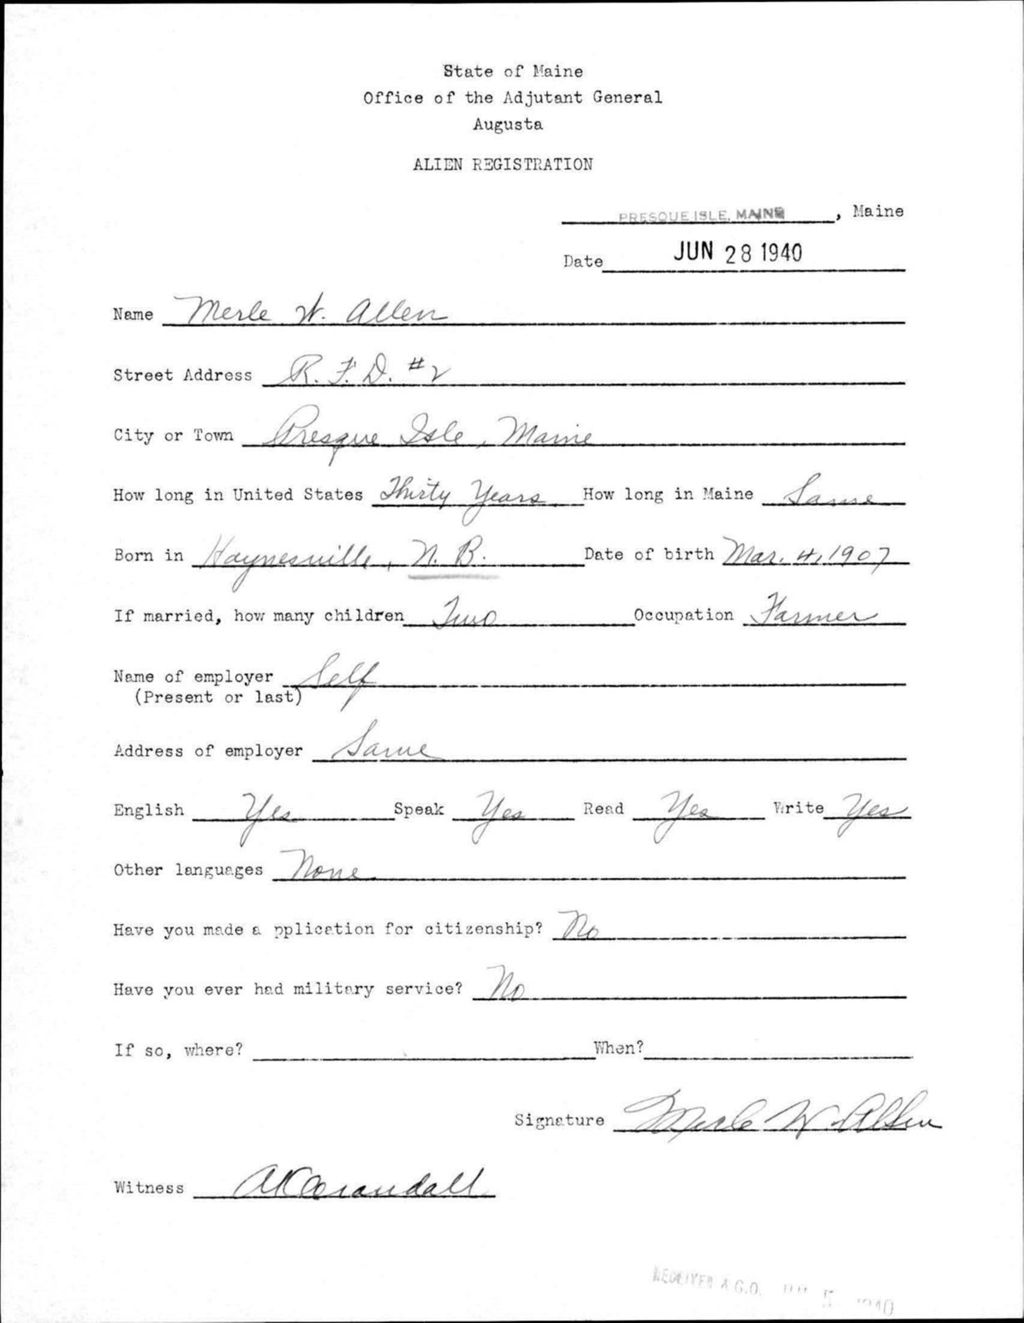 State of Maine
Office of the Adjutant General
Augusta
ALIEN REGISTRATION
PRESQUE ISLE, MAINE , Maine
Date JUN 28 1940
Name Merle W. Allen
Street Address R. F. D. #2
City or Town Presque Isle, Maine
How long in United States Thirty Years How long in Maine Same
Born in Haynesville, N. B. Date of birth Mar. 4, 1907
If married, how many children Two Occupation Farmer
Name of employer Self
(Present or last)
Address of employer Same
English Yes Speak Yes Read Yes Write Yes
Other languages None
Have you made a pplication for citizenship? No
Have you ever had military service? No
If so, where? When?
Signature Merle W. Allen
Witness AK Crandall
RECEIVED A.G.O. 5 1940